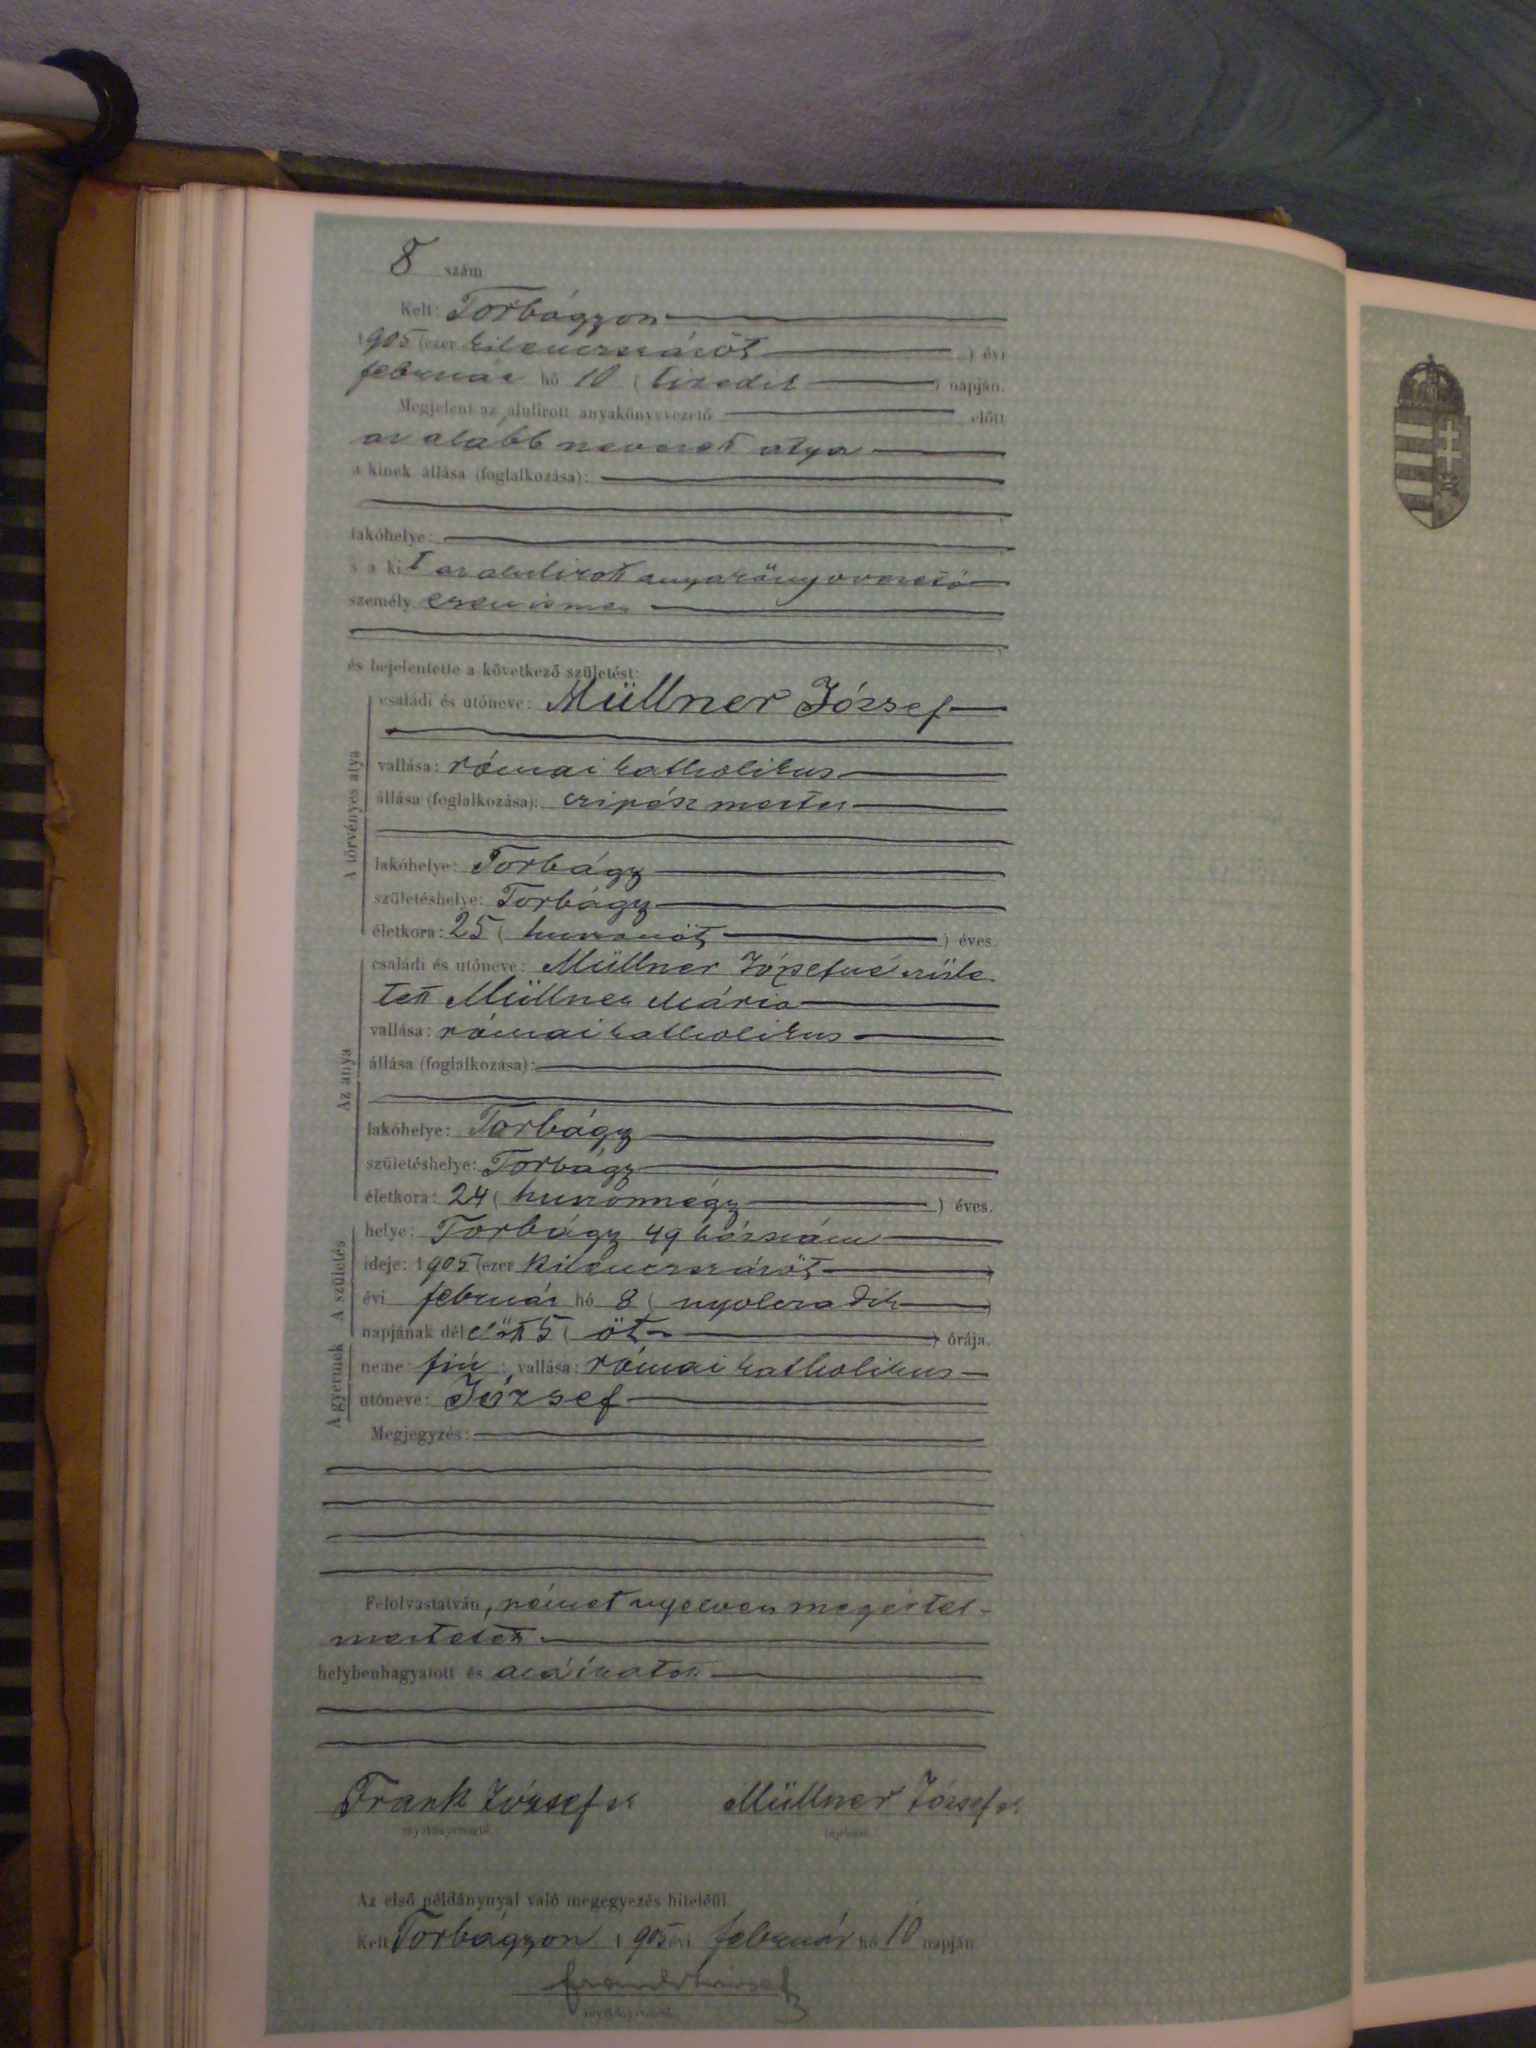 8 szám
Kelt: Torbágyon
1905 (ezer kilenczszázöt ) évi
február hó 10 ( tizedik ) napján.
Megjelent az alulirott anyakönyvvezető előtt
az alább nevezett atya
a kinek állása (foglalkozása):
lakóhelye:
s a kit az alulirott anyakönyvvezető
személyesen ismer
és bejelentette a következő születést:
A törvényes atya
családi és utóneve: Müllner József
vallása: római katholikus
állása (foglalkozása): czipész mester
lakóhelye: Torbágy
születéshelye: Torbágy
életkora: 25 ( huszonöt ) éves.
Az anya
családi és utóneve: Müllner Józsefné szüle
tett Müllner Mária
vallása: római katholikus
állása (foglalkozása):
lakóhelye: Torbágy
születéshelye: Torbágy
életkora: 24 ( huszonnégy ) éves.
A születés
helye: Torbágy 49 házszám
ideje: 1905 (ezer kilenczszázöt )
évi február hó 8 ( nyolczadik )
napjának délelőtt 5 ( öt ) órája.
A gyermek
neme: fiú ; vallása: római katholikus
utóneve: József
Megjegyzés:
Felolvastatván, német nyelven megértel-
meztetett
helybenhagyatott és aláíratott
Frank József sk Müllner József sk.
anyakönyvvezető. bejelentő.
Az első példánynyal való megegyezés hiteléül.
Kelt Torbágyon 1905 évi február hó 10 napján
Frank József
anyakönyvvezető.